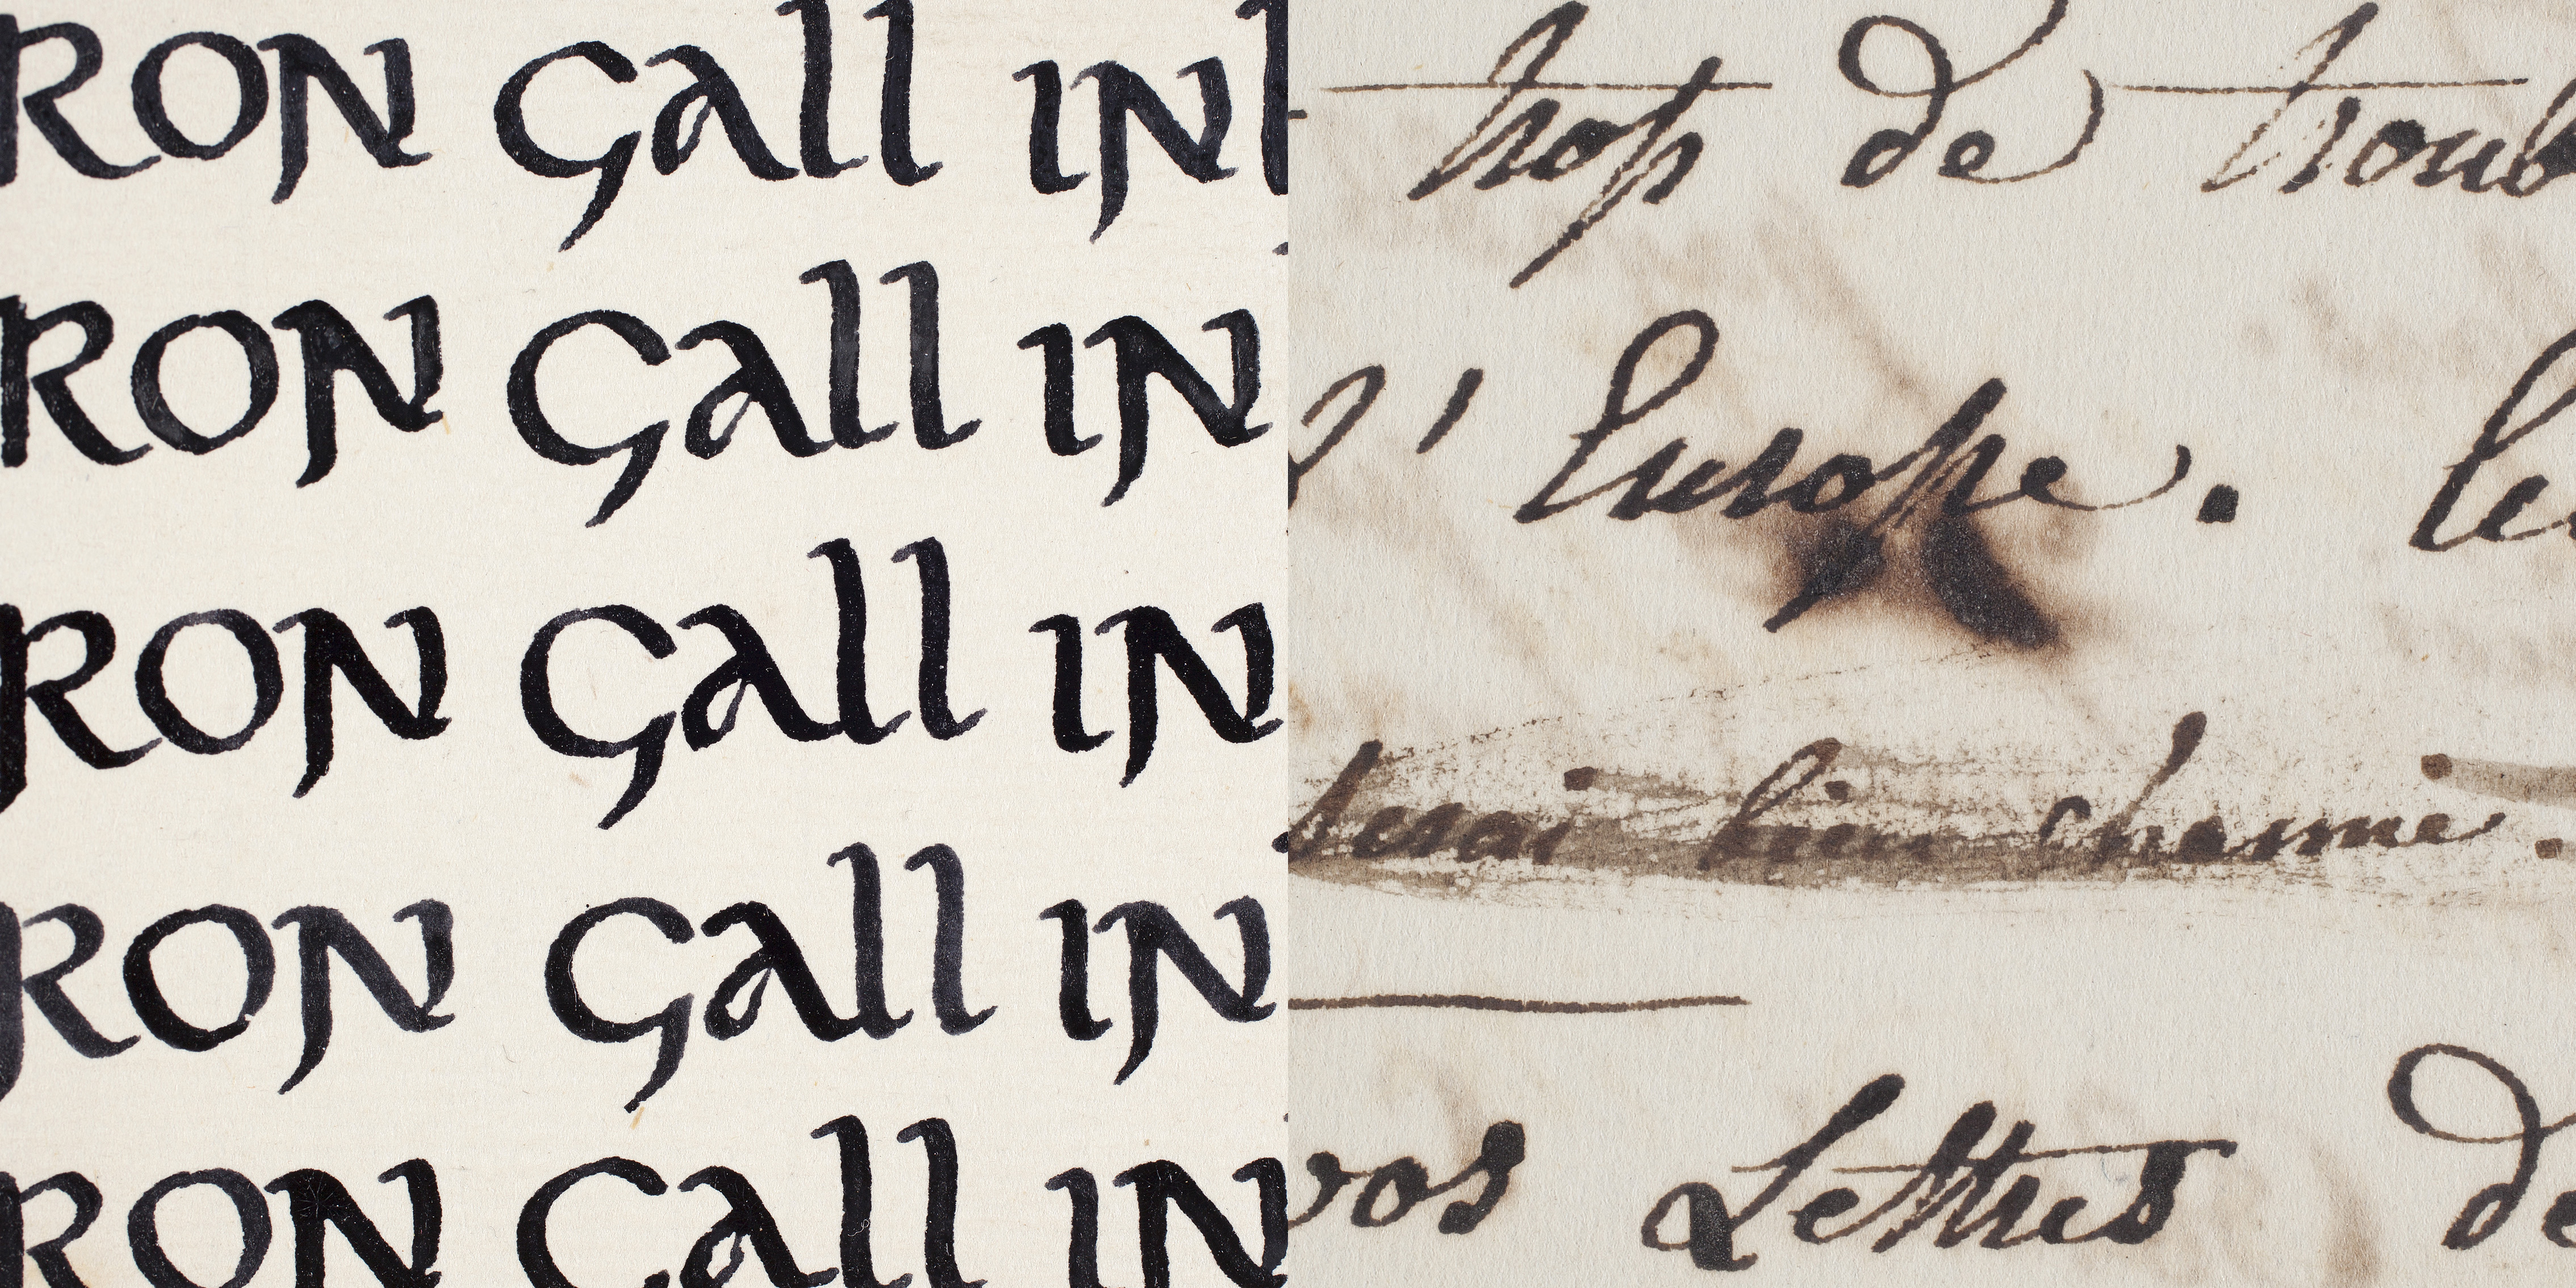 RON Gall IN
RON Gall IN
RON Gall IN
RON Gall IN
RON Gall IN
trop de troub
l'Europe. le
serai bien charmé.
vos Lettres de